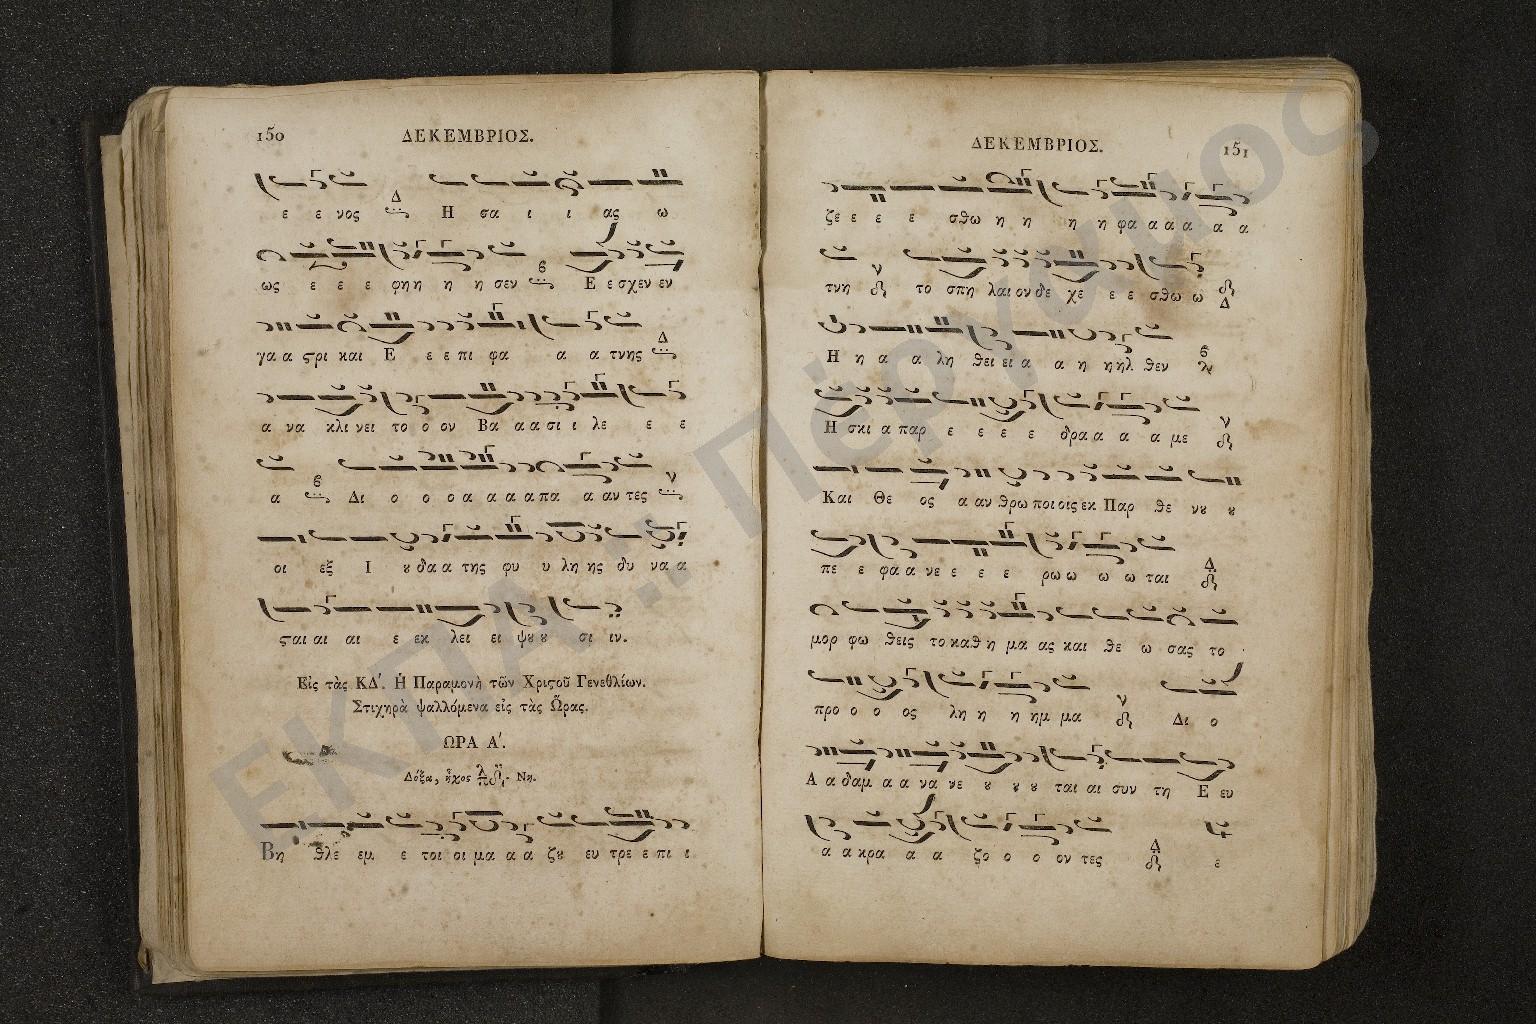 150 ΔΕΚΕΜΒΡΙΟΣ.
ε ε νος Δ Η σα ι ι ας ω
ως ε ε ε φη η η η σεν Ε ε σχεν εν
γα α ϛρι και Ε ε ε πι φα α α τνης Δ
α να κλι νει το ο ον Βα α α σι ι λε ε ε
α Δι ο ο ο α α α α πα α αν τες ν
οι εξ Ι ȣ δα α της φυ υ λη ης δυ να α
ϛαι αι αι ε εκ λει ει ψȣ ȣ σι ιν.
Εἰς τὰς ΚΔ΄. Ἡ Παραμονὴ τῶν Χριϛοῦ Γενεθλίων.
Στιχηρὰ ψαλλόμενα εἰς τὰς Ὥρας.
ΩΡΑ Α΄.
Δόξα, ἦχος Νη.
Βη θλε εμ ε τοι οι μα α α ζȣ ευ τρε ε πι ι
ΔΕΚΕΜΒΡΙΟΣ. 151
ζε ε ε ε σθω η η η η φα α α α α α
τνη ν το σπη λαι ον δε χε ε ε σθω ω Δ
Η η α α λη θει ει α α η η ηλ θεν
Η σκι α παρ ε ε ε ε δρα α α α με ν
Και Θε ος α αν θρω ποι οις εκ Παρ θε νȣ ȣ
πε ε φα α νε ε ε ε ρω ω ω ω ται Δ
μορ φω θεις το καθ η μα ας και θε ω σας το
προ ο ο ος λη η η ημ μα ν Δι ο
Α α δαμ α α να νε ȣ ȣ ȣ ται αι συν τη Ε ευ
α α κρα α α ζο ο ο ον τες Δ ε
ΕΚΠΑ :: Πέργαμος